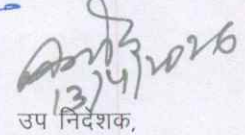 13/4/2026
उप निदेशक,